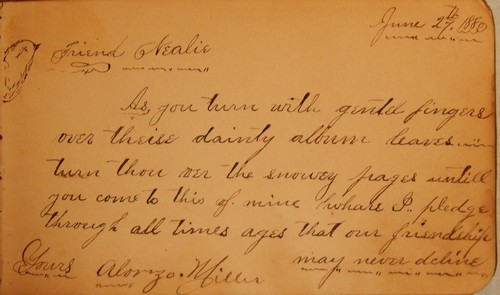 June 27th 1880
Friend Nealie
As, you turn with gentel fingers
over theise dainty album leaves.
turn thou over the snowey pages untill
you come to this of mine whare I pledge
through all times ages that our friendship
may never decline
Yours Alonzo. Miller